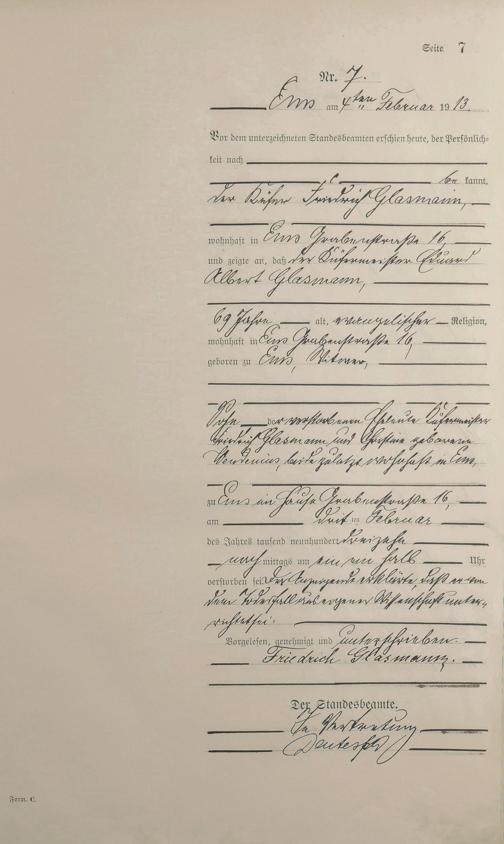 Seite 7
Nr. 7.
Ems am 4ten Februar 1913.
Vor dem unterzeichneten Standesbeamten erschien heute, der Persönlich-
keit nach
be kannt,
der Küfer Friedrich Glasmann,
wohnhaft in Ems Grabenstraße 16,
und zeigte an, daß der Küfermeister Eduard
Albert Glasmann,
69 Jahre alt, evangelischer Religion,
wohnhaft in Ems Grabenstraße 16,
geboren zu Ems, Witwer,
Sohn der verstorbenen Eheleute Küfermeister
Friedrich Glasmann und Christine geborene
beide zuletzt wohnhaft in Ems,
zu Ems im Hause Grabenstraße 16,
am dritten Februar
des Jahres tausend neunhundert dreizehn
nach mittags um ein ein halb Uhr
verstorben sei. Der Anzeigende erklärte, daß er von
dem Todesfall aus eigener Wissenschaft unter-
richtet sei.
Vorgelesen, genehmigt und unterschrieben
Friedrich Glasmann.
Der Standesbeamte.
In Vertretung
Form. C.